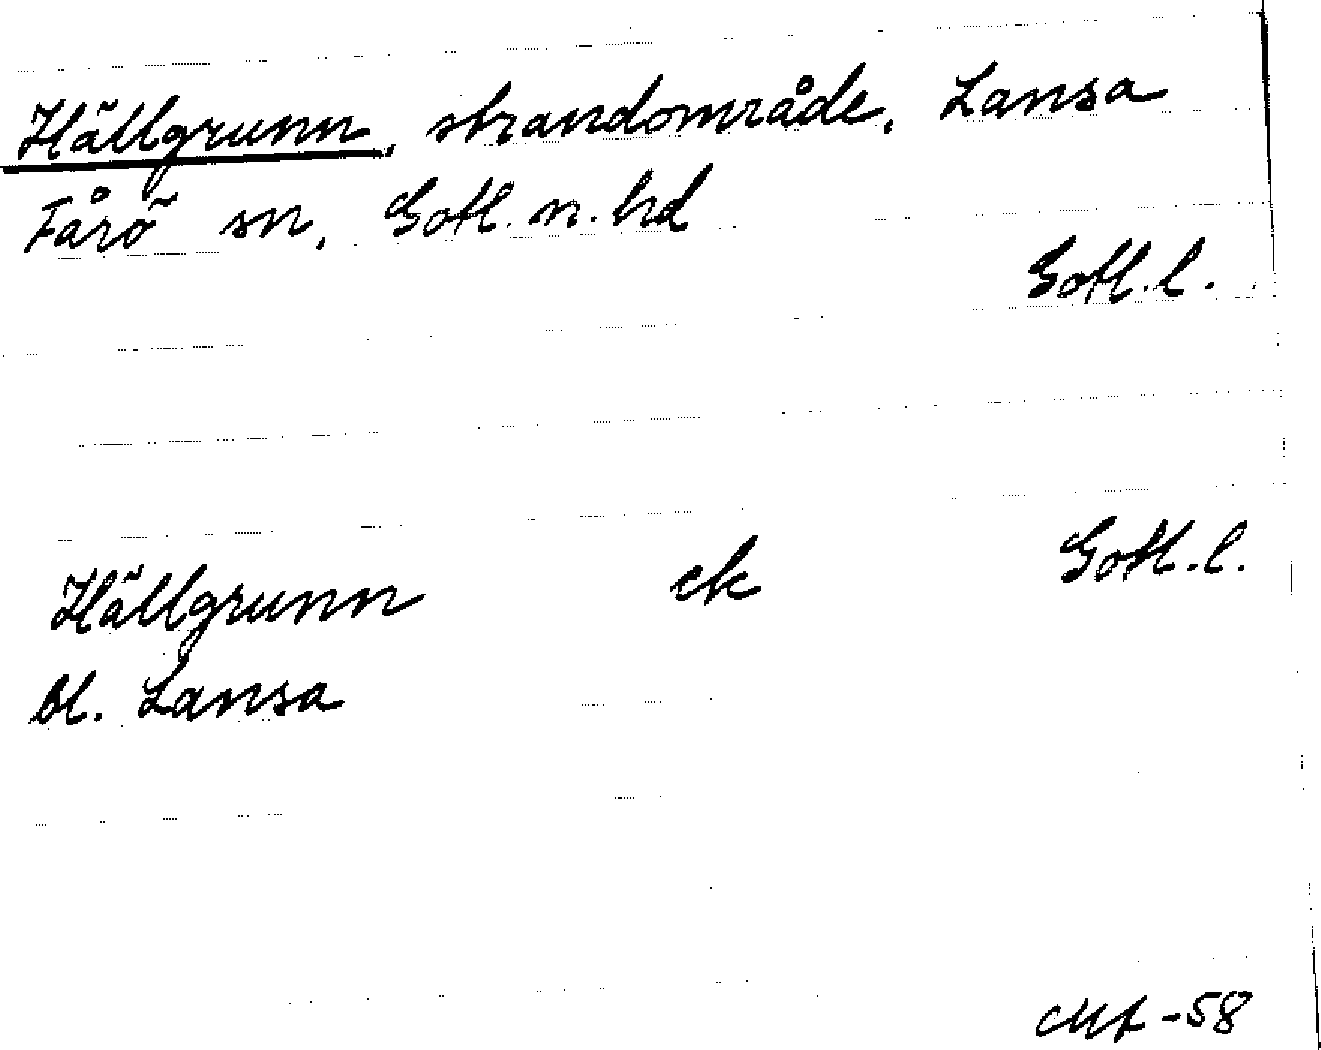 Hällgrunn, strandområde, Lansa
Fårö sn, Gotl. n. hd
Gotl. l.
Hällgrunn ek Gotl. l.
bl. Lansa
-58